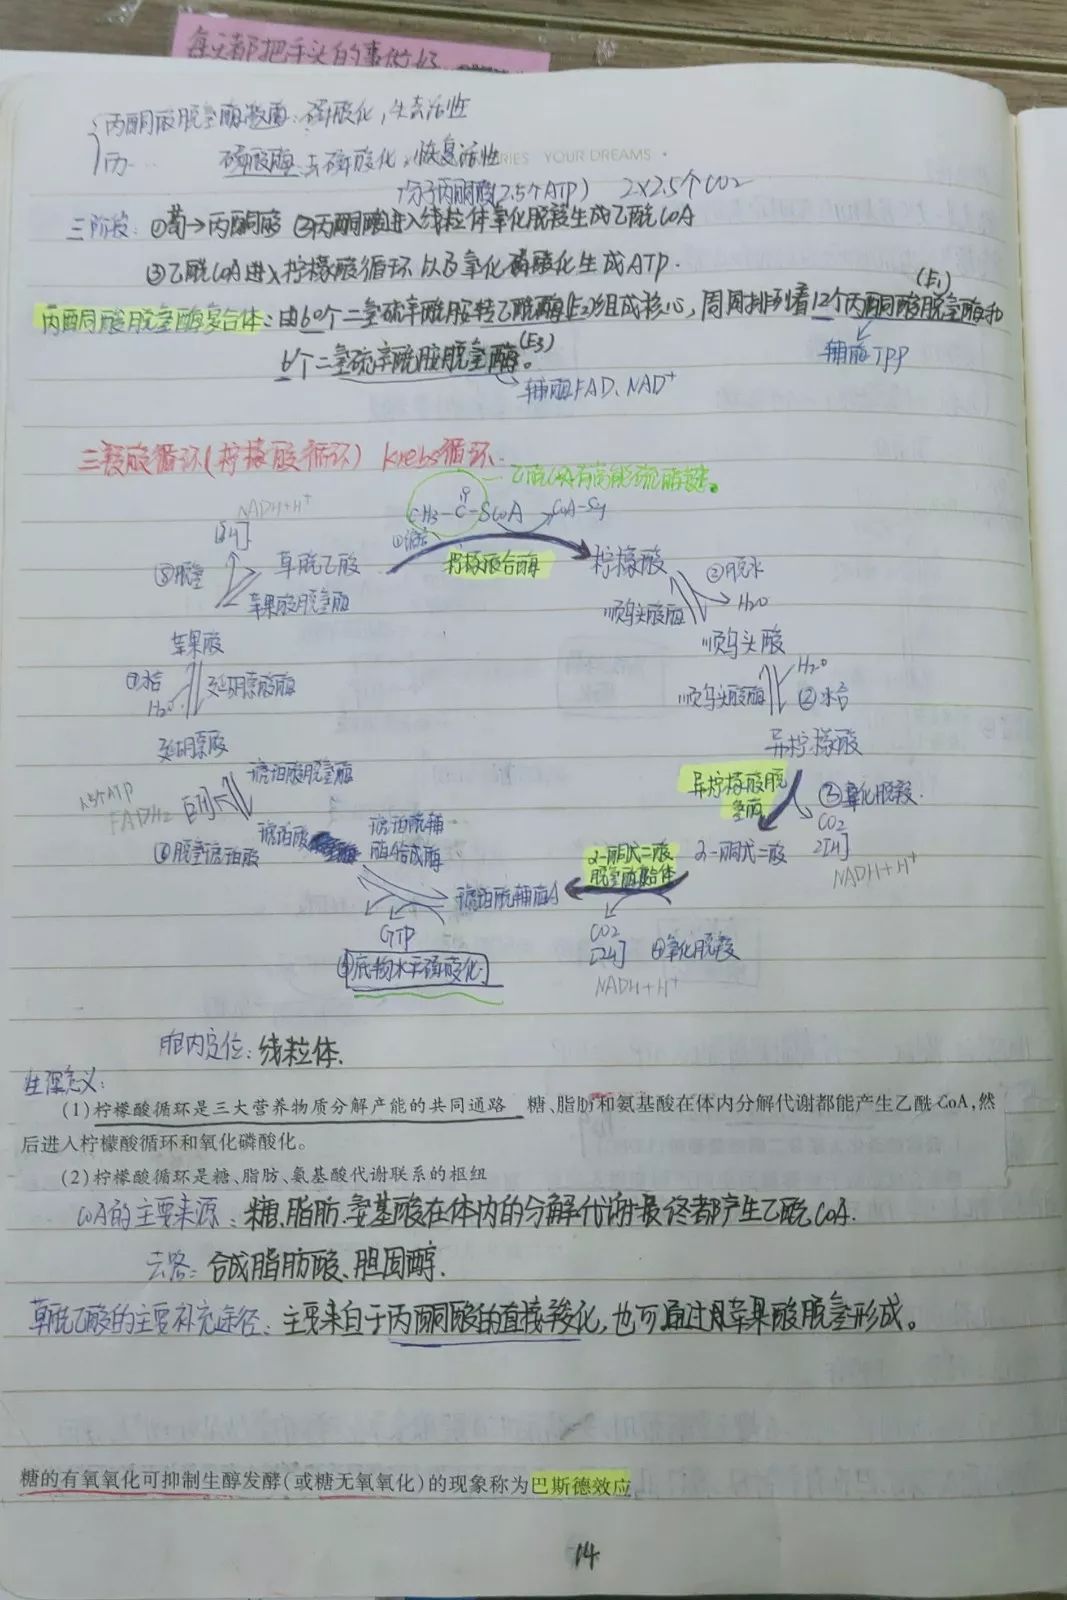 每天都把手头的事做好
丙酮酸脱氢酶激酶：磷酸化，失去活性
丙… 磷酸酶：去磷酸化，恢复活性
RIES YOUR DREAMS
1分子丙酮酸(2.5个ATP) 2×2.5个CO2
三阶段：①葡→丙酮酸 ②丙酮酸进入线粒体氧化脱羧生成乙酰CoA
③乙酰CoA进入柠檬酸循环以及氧化磷酸化生成ATP.
丙酮酸脱氢酶复合体：由60个二氢硫辛酰胺转乙酰酶(E2)组成核心，周围排列着12个丙酮酸脱氢酶(E1)和
辅酶TPP
6个二氢硫辛酰胺脱氢酶(E3)。
辅酶FAD、NAD+
三羧酸循环(柠檬酸循环) Krebs循环.
乙酰CoA有高能硫酯键。
NADH+H+
[2H]
CH3-C-SCoA
O
CoA-SH
①缩合
柠檬酸合酶
⑧脱氢
草酰乙酸
苹果酸脱氢酶
柠檬酸
②脱水
H2O
顺乌头酸酶
顺乌头酸
苹果酸
⑦水合
H2O
延胡索酸酶
顺乌头酸酶
H2O
②水合
延胡索酸
异柠檬酸
琥珀酸脱氢酶
1.5个ATP
FADH2
[2H]
异柠檬酸脱
氢酶
③氧化脱羧
CO2
2[H]
NADH+H+
⑥脱氢琥珀酸
琥珀酸
琥珀酰辅
酶A合成酶
α-酮戊二酸
脱氢酶复合体
α-酮戊二酸
琥珀酰辅酶A
GTP
CO2
[2H]
④氧化脱羧
NADH+H+
底物水平磷酸化
胞内定位：线粒体.
生理意义：
(1)柠檬酸循环是三大营养物质分解产能的共同通路 糖、脂肪和氨基酸在体内分解代谢都能产生乙酰CoA,然
后进入柠檬酸循环和氧化磷酸化。
(2)柠檬酸循环是糖、脂肪、氨基酸代谢联系的枢纽
CoA的主要来源：糖、脂肪、氨基酸在体内的分解代谢最终都产生乙酰CoA.
去路：合成脂肪酸、胆固醇.
草酰乙酸的主要补充途径：主要来自于丙酮酸的直接羧化，也可通过苹果酸脱氢形成。
糖的有氧氧化可抑制生醇发酵(或糖无氧氧化)的现象称为巴斯德效应
14